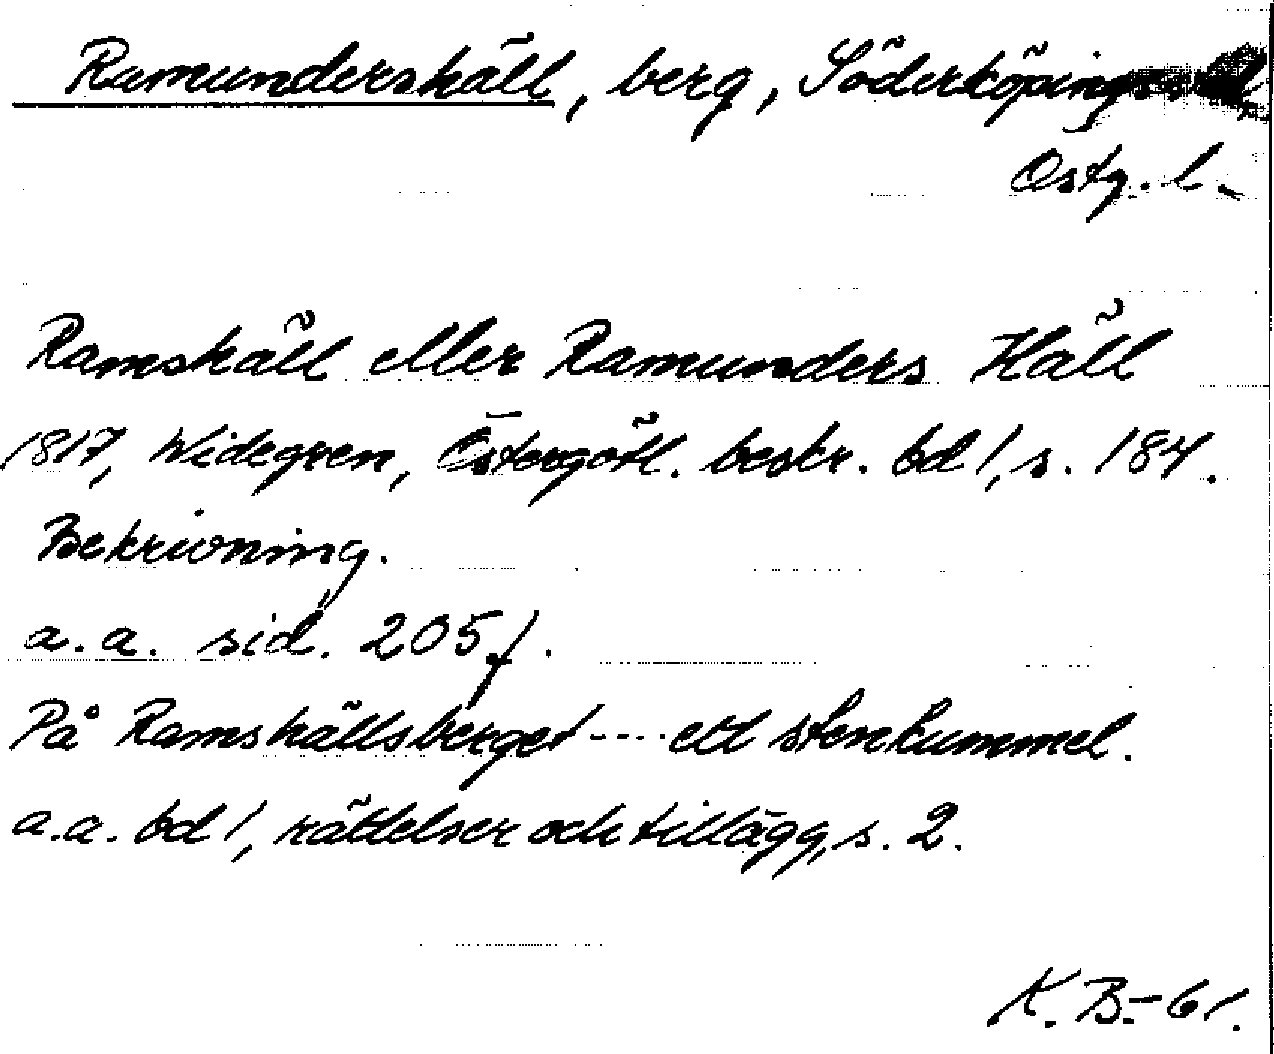 Ramundershäll, berg, Söderköpings
Östg. l.
Ramshäll eller Ramunders Häll
1817, Widegren, Östergötl. beskr. bd 1, s. 184.
Bekrivning.
a.a. sid. 205 f.
På Ramshällsberget ---- ett stenkummel.
a.a. bd 1, rättelser och tillägg, s. 2.
K.B.-61.